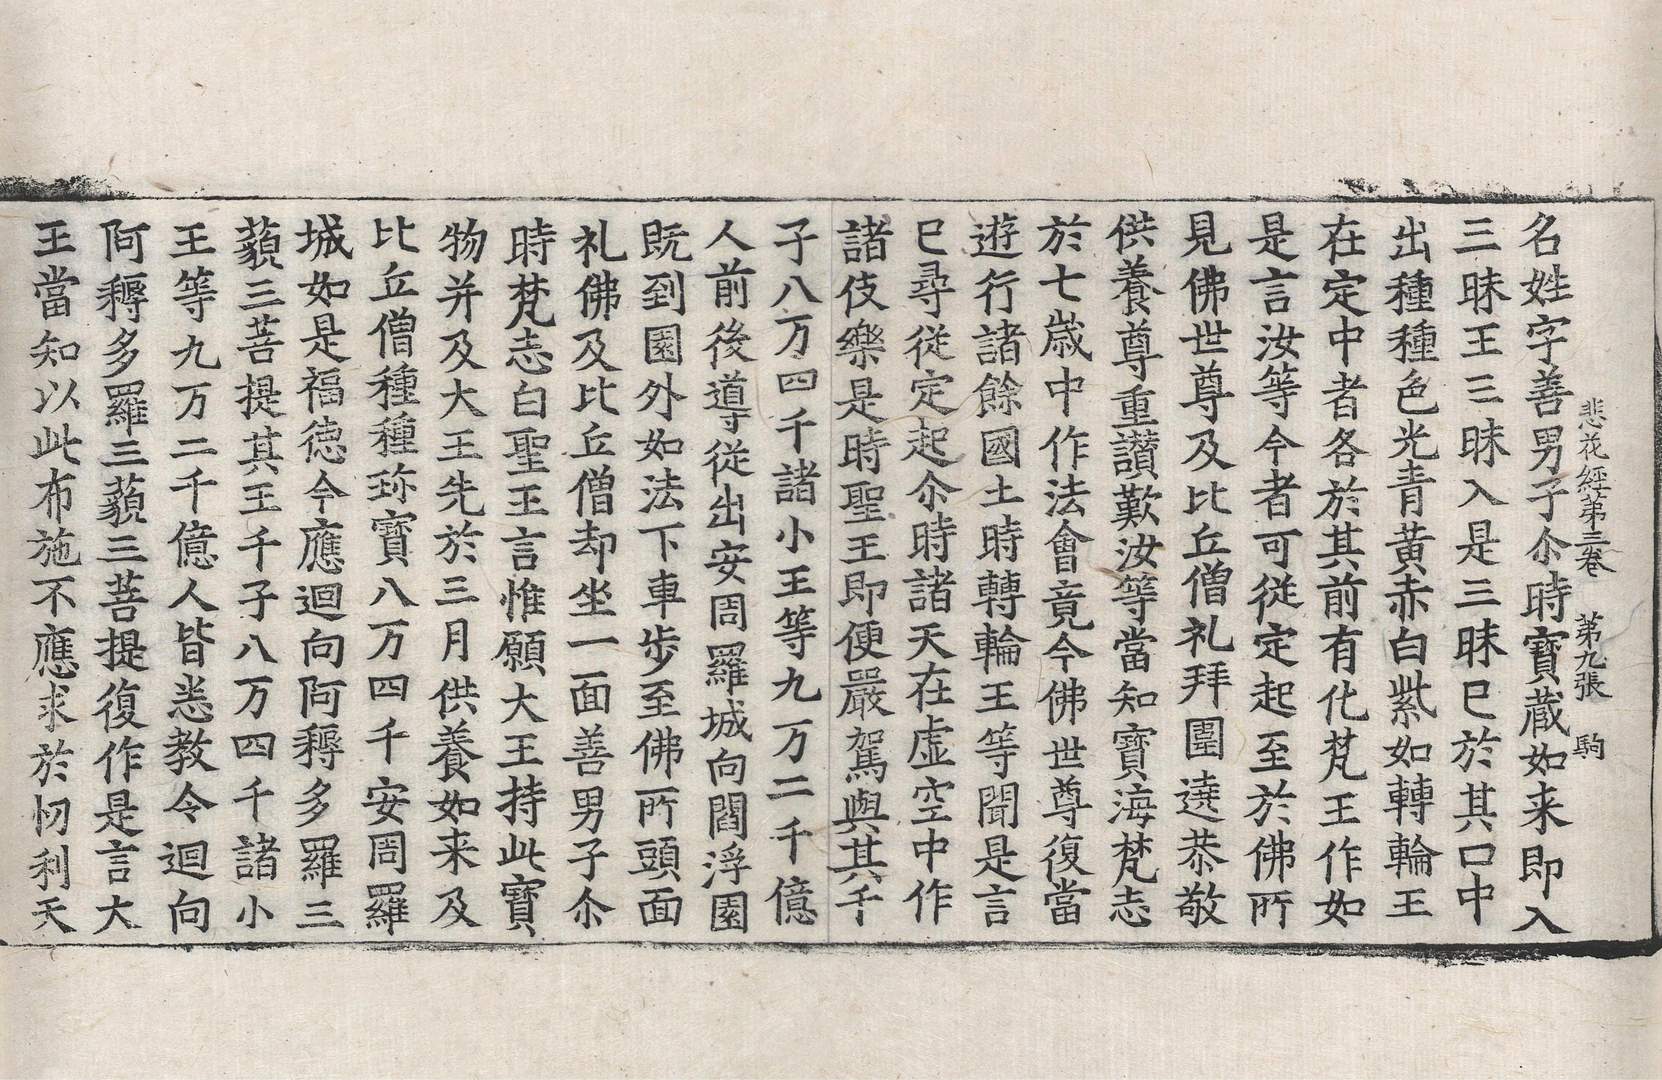 悲花經第三卷 第九張 駒
名姓字善男子尒時寶蔵如来即入
三昧王三昧入是三昧已於其口中
出種種色光青黄赤白紫如轉輪王
在定中者各於其前有化梵王作如
是言汝等今者可従定起至於佛所
見佛世尊及比丘僧礼拜圍遶恭敬
供養尊重讃歎汝等當知寶海梵志
於七歳中作法會竟今佛世尊復當
遊行諸餘國土時轉輪王等聞是言
已尋従定起尒時諸天在虚空中作
諸伎樂是時聖王即便嚴駕與其千
子八万四千諸小王等九万二千億
人前後導従出安周羅城向閻浮園
既到園外如法下車歩至佛所頭面
礼佛及比丘僧却坐一面善男子尒
時梵志白聖王言惟願大王持此寶
物并及大王先於三月供養如来及
比丘僧種種珎寶八万四千安周羅
城如是福徳今應迴向阿耨多羅三
藐三菩提其王千子八万四千諸小
王等九万二千億人皆悉教令迴向
阿耨多羅三藐三菩提復作是言大
王當知以此布施不應求於忉利天